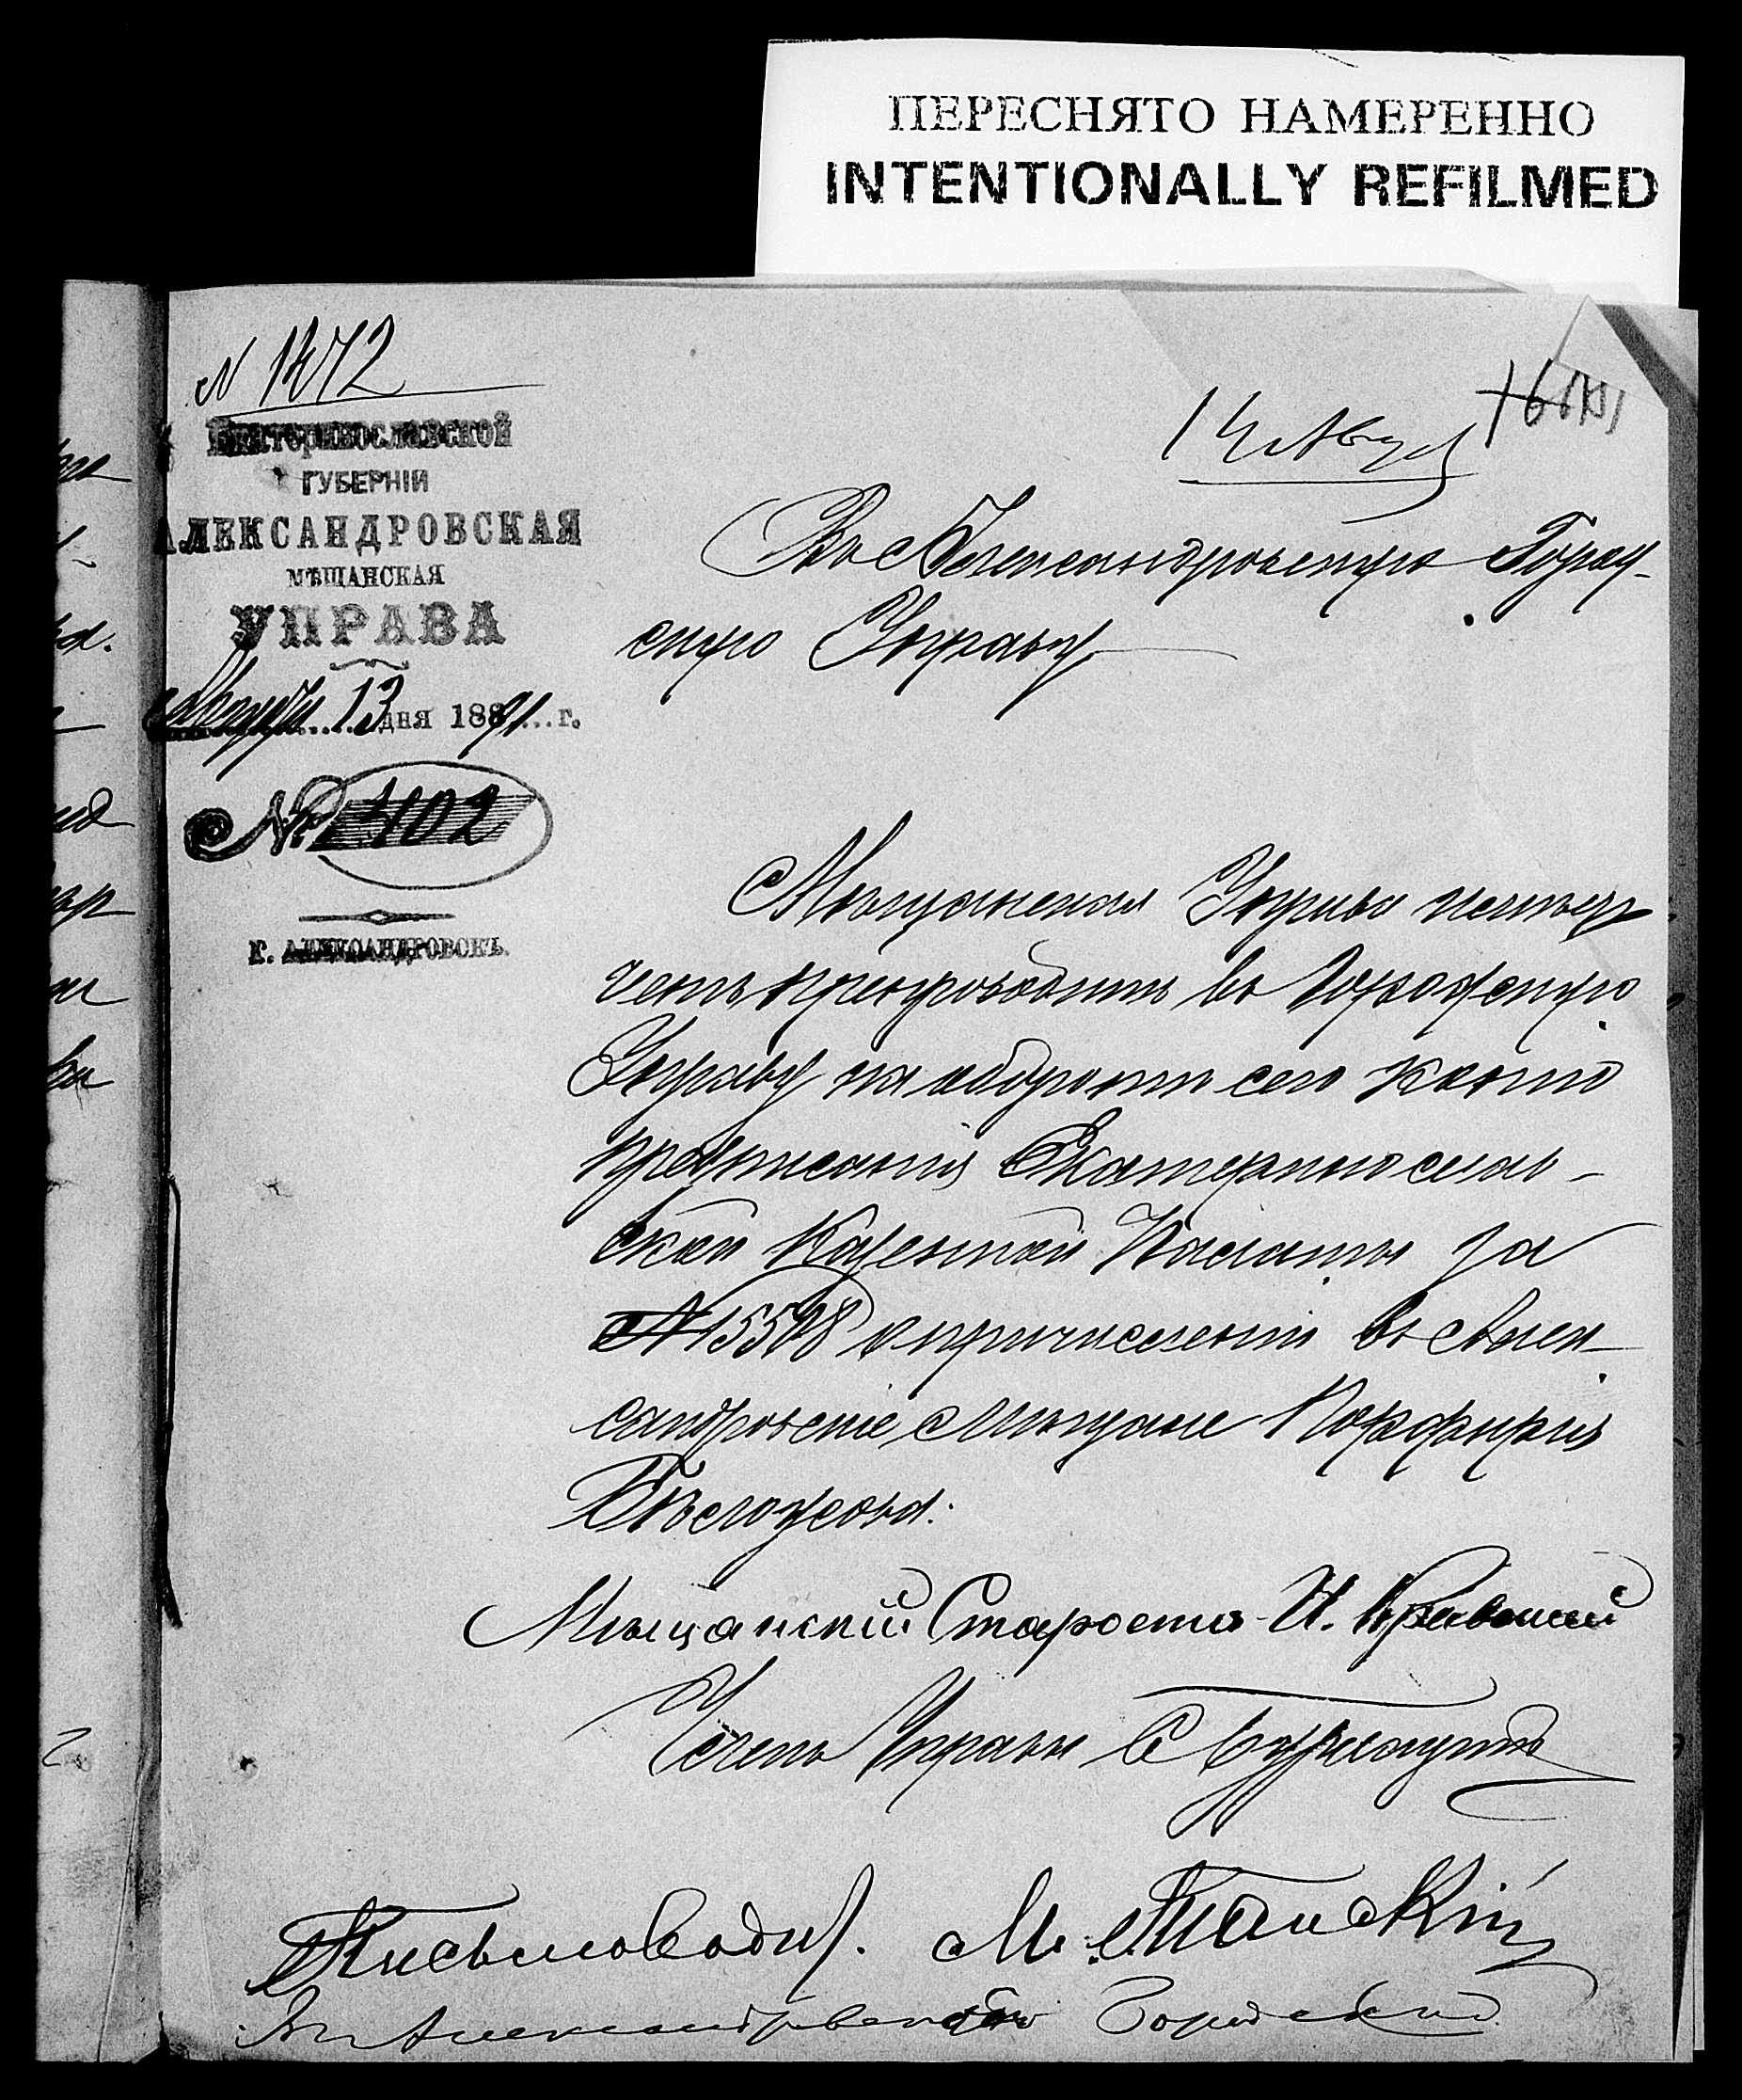 ПЕРЕСНЯТО НАМЕРЕННО
INTENTIONALLY REFILMED
14 Авг
Екатеринославской
ГУБЕРНІИ
АЛЕКСАНДРОВСКАЯ
МѢЩАНСКАЯ
УПРАВА
Августа 13 дня 1891 г.
№ 402
г. АЛЕКСАНДРОВСКЪ.
Въ Александровскую Город-
скую Управу
Мѣщанская Управа имѣетъ
честь препроводить въ Городскую
Управу на оборотѣ сего копію
предписанія Екатеринослав-
ской Казенной Палаты за
о причисленіи въ Алек-
сандровскіе Мѣщане Порфирія
Мѣщанскій Староста И.
Членъ Управы
Письмоводит.
Въ Александровскую Городскую